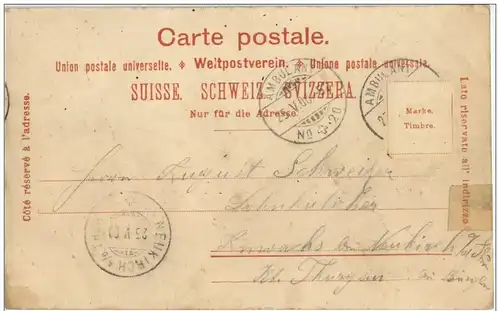 Carte postale.
Union postale universelle. ❖ Weltpostverein. ❖ Unione postale universale.
SUISSE. SCHWEIZ. SVIZZERA.
Nur für die Adresse.
Côté réservé à l'adresse.
Lato riservato all' indirizzo.
Marke.
Timbre.
AMBULANT
No 20
AMBULANT
NEUKIRCH
Herrn August Schweizer
bei Neukirch
Kt. Thurgau